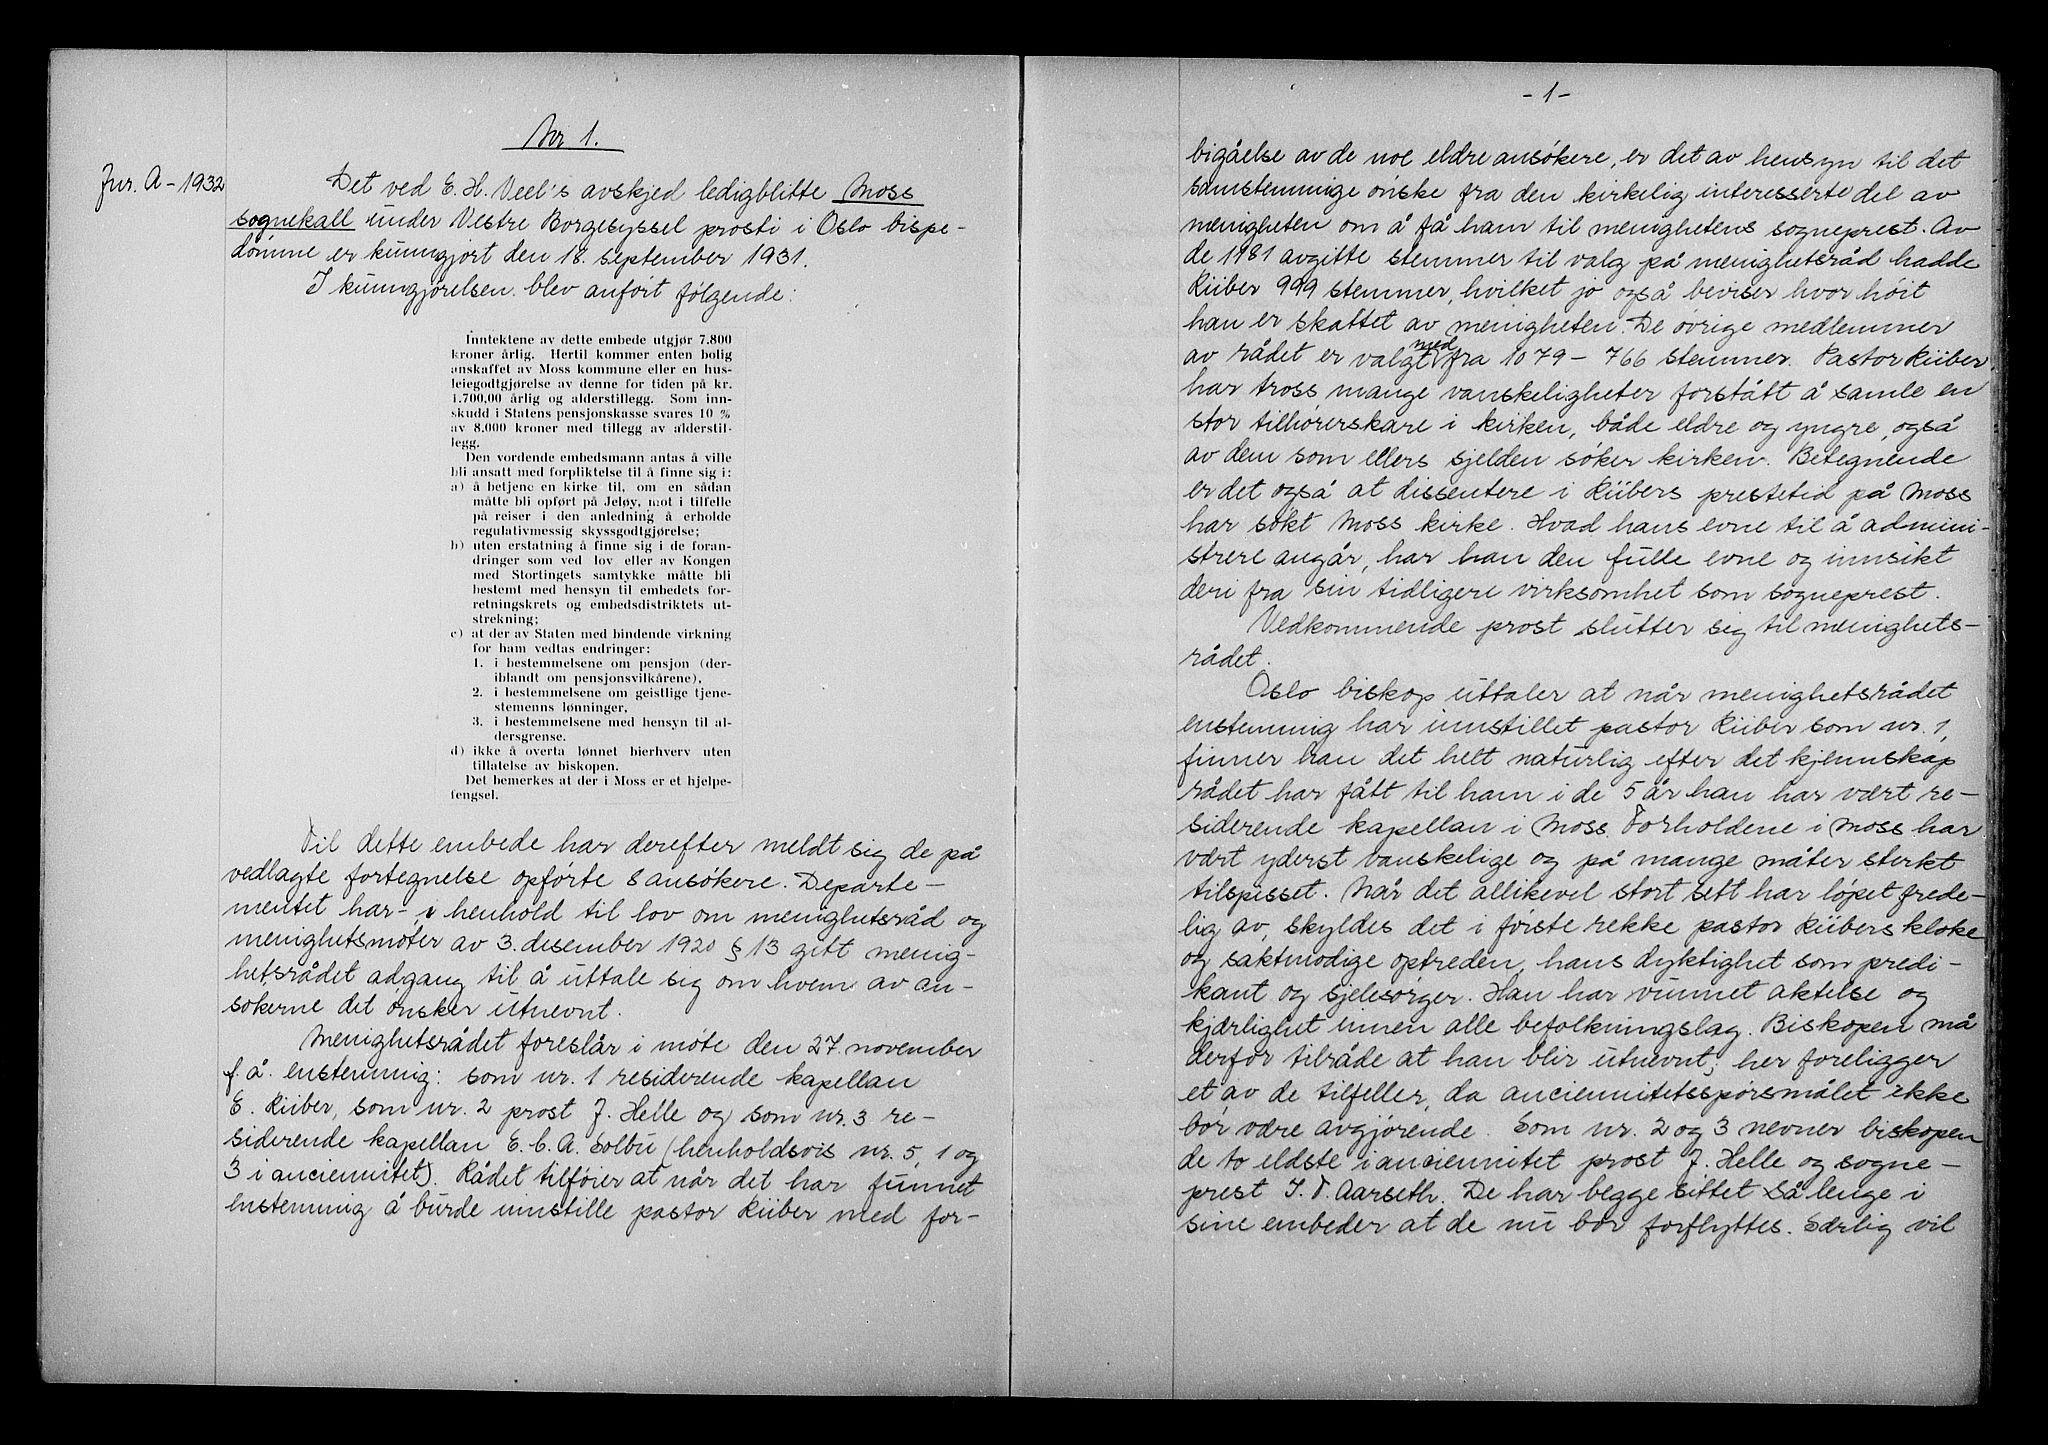 Nr 1.
Jnr. A - 1932
Det ved E. H. Veel's avskjed ledigblitte Moss
sognekall under Vestre Borgesyssel prosti i Oslo bispe-
dømme er kunngjort den 18. september 1931.
I kunngjørelsen blev anført følgende:
Inntektene av dette embede utgjør 7.800
kroner årlig. Hertil kommer enten bolig
anskaffet av Moss kommune eller en hus-
leiegodtgjørelse av denne for tiden på kr.
1.700,00 årlig og alderstillegg. Som inn-
skudd i Statens pensjonskasse svares 10 %
av 8.000 kroner med tillegg av alderstil-
legg.
Den vordende embedsmann antas å ville
bli ansatt med forpliktelse til å finne sig i:
a) å betjene en kirke til, om en sådan
måtte bli opført på Jeløy, mot i tilfelle
på reiser i den anledning å erholde
regulativmessig skyssgodtgjørelse;
b) uten erstatning å finne sig i de foran-
dringer som ved lov eller av Kongen
med Stortingets samtykke måtte bli
bestemt med hensyn til embedets for-
retningskrets og embedsdistriktets ut-
strekning;
c) at der av Staten med bindende virkning
for ham vedtas endringer:
1. i bestemmelsene om pensjon (der-
iblandt om pensjonsvilkårene),
2. i bestemmelsene om geistlige tjene-
stemenns lønninger,
3. i bestemmelsene med hensyn til al-
dersgrense.
d) ikke å overta lønnet bierhverv uten
tillatelse av biskopen.
Det bemerkes at der i Moss er et hjelpe-
fengsel.
Til dette embede har derefter meldt sig de på
vedlagte fortegnelse opførte 8 ansøkere. Departe-
mentet har i henhold til lov om menighetsråd og
menighetsmøter av 3. desember 1920 § 13 gitt menig-
hetsrådet adgang til å uttale sig om hvem av an-
søkerne det ønsker utnevnt.
Menighetsrådet foreslår i møte den 27. november
f.å. enstemmig: som nr. 1 residerende kapellan
E. Riiber, som nr. 2 prost J. Helle og som nr. 3 re-
siderende kapellan E. C. A. Solbu (henholdsvis nr. 5, 1 og
3 i anciennitet). Rådet tilføier at når det har funnet
enstemmig å burde innstille pastor Riiber med for-
- 1 -
bigåelse av de noe eldre ansøkere, er det av hensyn til det
samstemmige ønske fra den kirkelig interesserte del av
menigheten om å få ham til menighetens sogneprest. Av
de 1981 avgitte stemmer til valg på menighetsråd hadde
Riiber 999 stemmer, hvilket jo også beviser hvor høit
han er skattet av menigheten. De øvrige medlemmer
av rådet er valgt med fra 1079 - 766 stemmer. Pastor Riiber
har tross mange vanskeligheter forstått å samle en
stor tilhørerskare i kirken, både eldre og yngre, også
av dem som ellers sjelden søker kirken. Betegnende
er det også at dissentere i Riibers prestetid på Moss
har søkt Moss kirke. Hvad hans evne til å admini-
strere angår, har han den fulle evne og innsikt
deri fra sin tidligere virksomhet som sogneprest.
Vedkommende prost slutter sig til menighets-
rådet.
Oslo biskop uttaler at når menighetsrådet
enstemmig har innstillet pastor Riiber som nr. 1,
finner han det helt naturlig efter det kjennskap
rådet har fått til ham i de 5 år han har vært re-
siderende kapellan i Moss. Forholdene i Moss har
vært yderst vanskelige og på mange måter sterkt
tilspisset. Når det allikevel stort sett har løpet frede-
lig av, skyldes det i første rekke pastor Riibers kloke
og saktmodige optreden, hans dyktighet som predi-
kant og sjelesørger. Han har vunnet aktelse og
kjærlighet innen alle befolkningslag. Biskopen må
derfor tilråde at han blir utnevnt; her foreligger
et av de tilfeller, da anciennitetsspørsmålet ikke
bør være avgjørende. Som nr. 2 og 3 nevner biskopen
de to eldste i anciennitet prost J. Helle og sogne-
prest I. F. Aarseth. De har begge sittet så lenge i
sine embeder at de nu bør forflyttes. Særlig vil